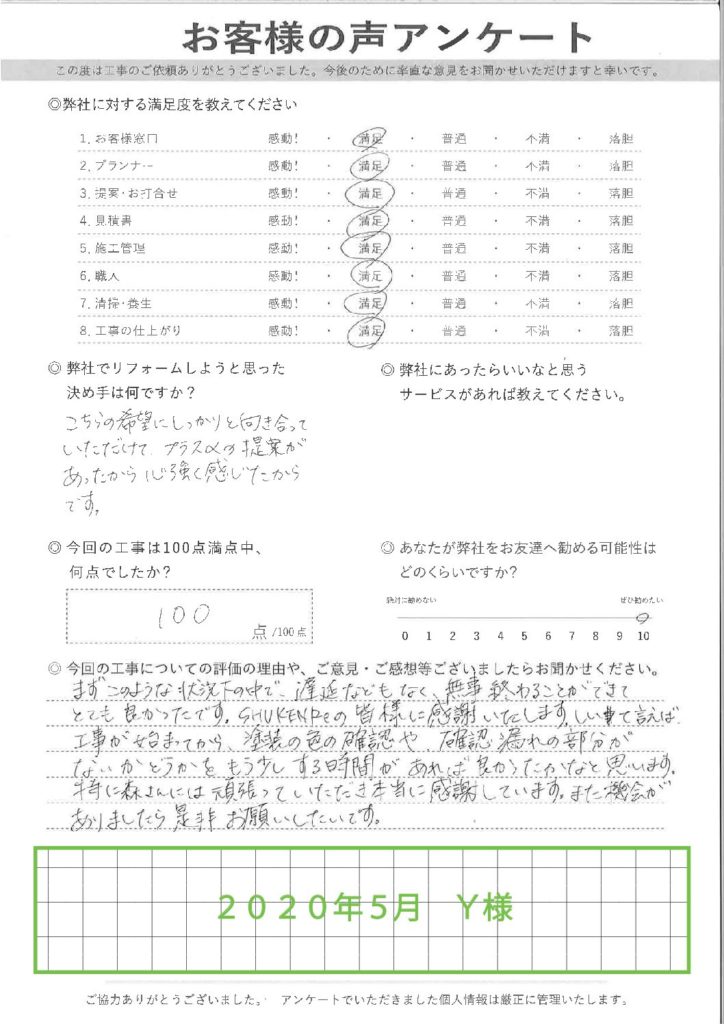 お客様の声アンケート
この度は工事のご依頼ありがとうございました。今後のために率直な意見をお聞かせいただけますと幸いです。
◎弊社に対する満足度を教えてください
1. お客様窓口 感動! ・ 満足 ・ 普通 ・ 不満 ・ 落胆
2. プランナー 感動! ・ 満足 ・ 普通 ・ 不満 ・ 落胆
3. 提案・お打合せ 感動! ・ 満足 ・ 普通 ・ 不満 ・ 落胆
4. 見積書 感動! ・ 満足 ・ 普通 ・ 不満 ・ 落胆
5. 施工管理 感動! ・ 満足 ・ 普通 ・ 不満 ・ 落胆
6. 職人 感動! ・ 満足 ・ 普通 ・ 不満 ・ 落胆
7. 清掃・養生 感動! ・ 満足 ・ 普通 ・ 不満 ・ 落胆
8. 工事の仕上がり 感動! ・ 満足 ・ 普通 ・ 不満 ・ 落胆
◎ 弊社でリフォームしようと思った
決め手は何ですか？
こちらの希望にしっかりと向き合って
いただけて、プラスαの提案が
あったから心強く感じたから
です。
◎ 弊社にあったらいいなと思う
サービスがあれば教えてください。
◎ 今回の工事は100点満点中、
何点でしたか？
100
点 /100点
◎ あなたが弊社をお友達へ勧める可能性は
どのくらいですか？
絶対に勧めない ぜひ勧めたい
0 1 2 3 4 5 6 7 8 9 10
◎ 今回の工事についての評価の理由や、ご意見・ご感想等ございましたらお聞かせください。
まずこのような状況下の中で、遅延などもなく、無事終わることができて
とても良かったです。SHUKENReの皆様に感謝いたします。しいて言えば
工事が始まってから、塗装の色の確認や、確認漏れの部分が
ないかどうかをもう少しする時間があれば良かったかなと思います。
特に森さんには頑張っていただき本当に感謝しています。また機会が
ありましたら是非お願いしたいです。
2020年5月 Y様
ご協力ありがとうございました。 アンケートでいただきました個人情報は厳正に管理いたします。